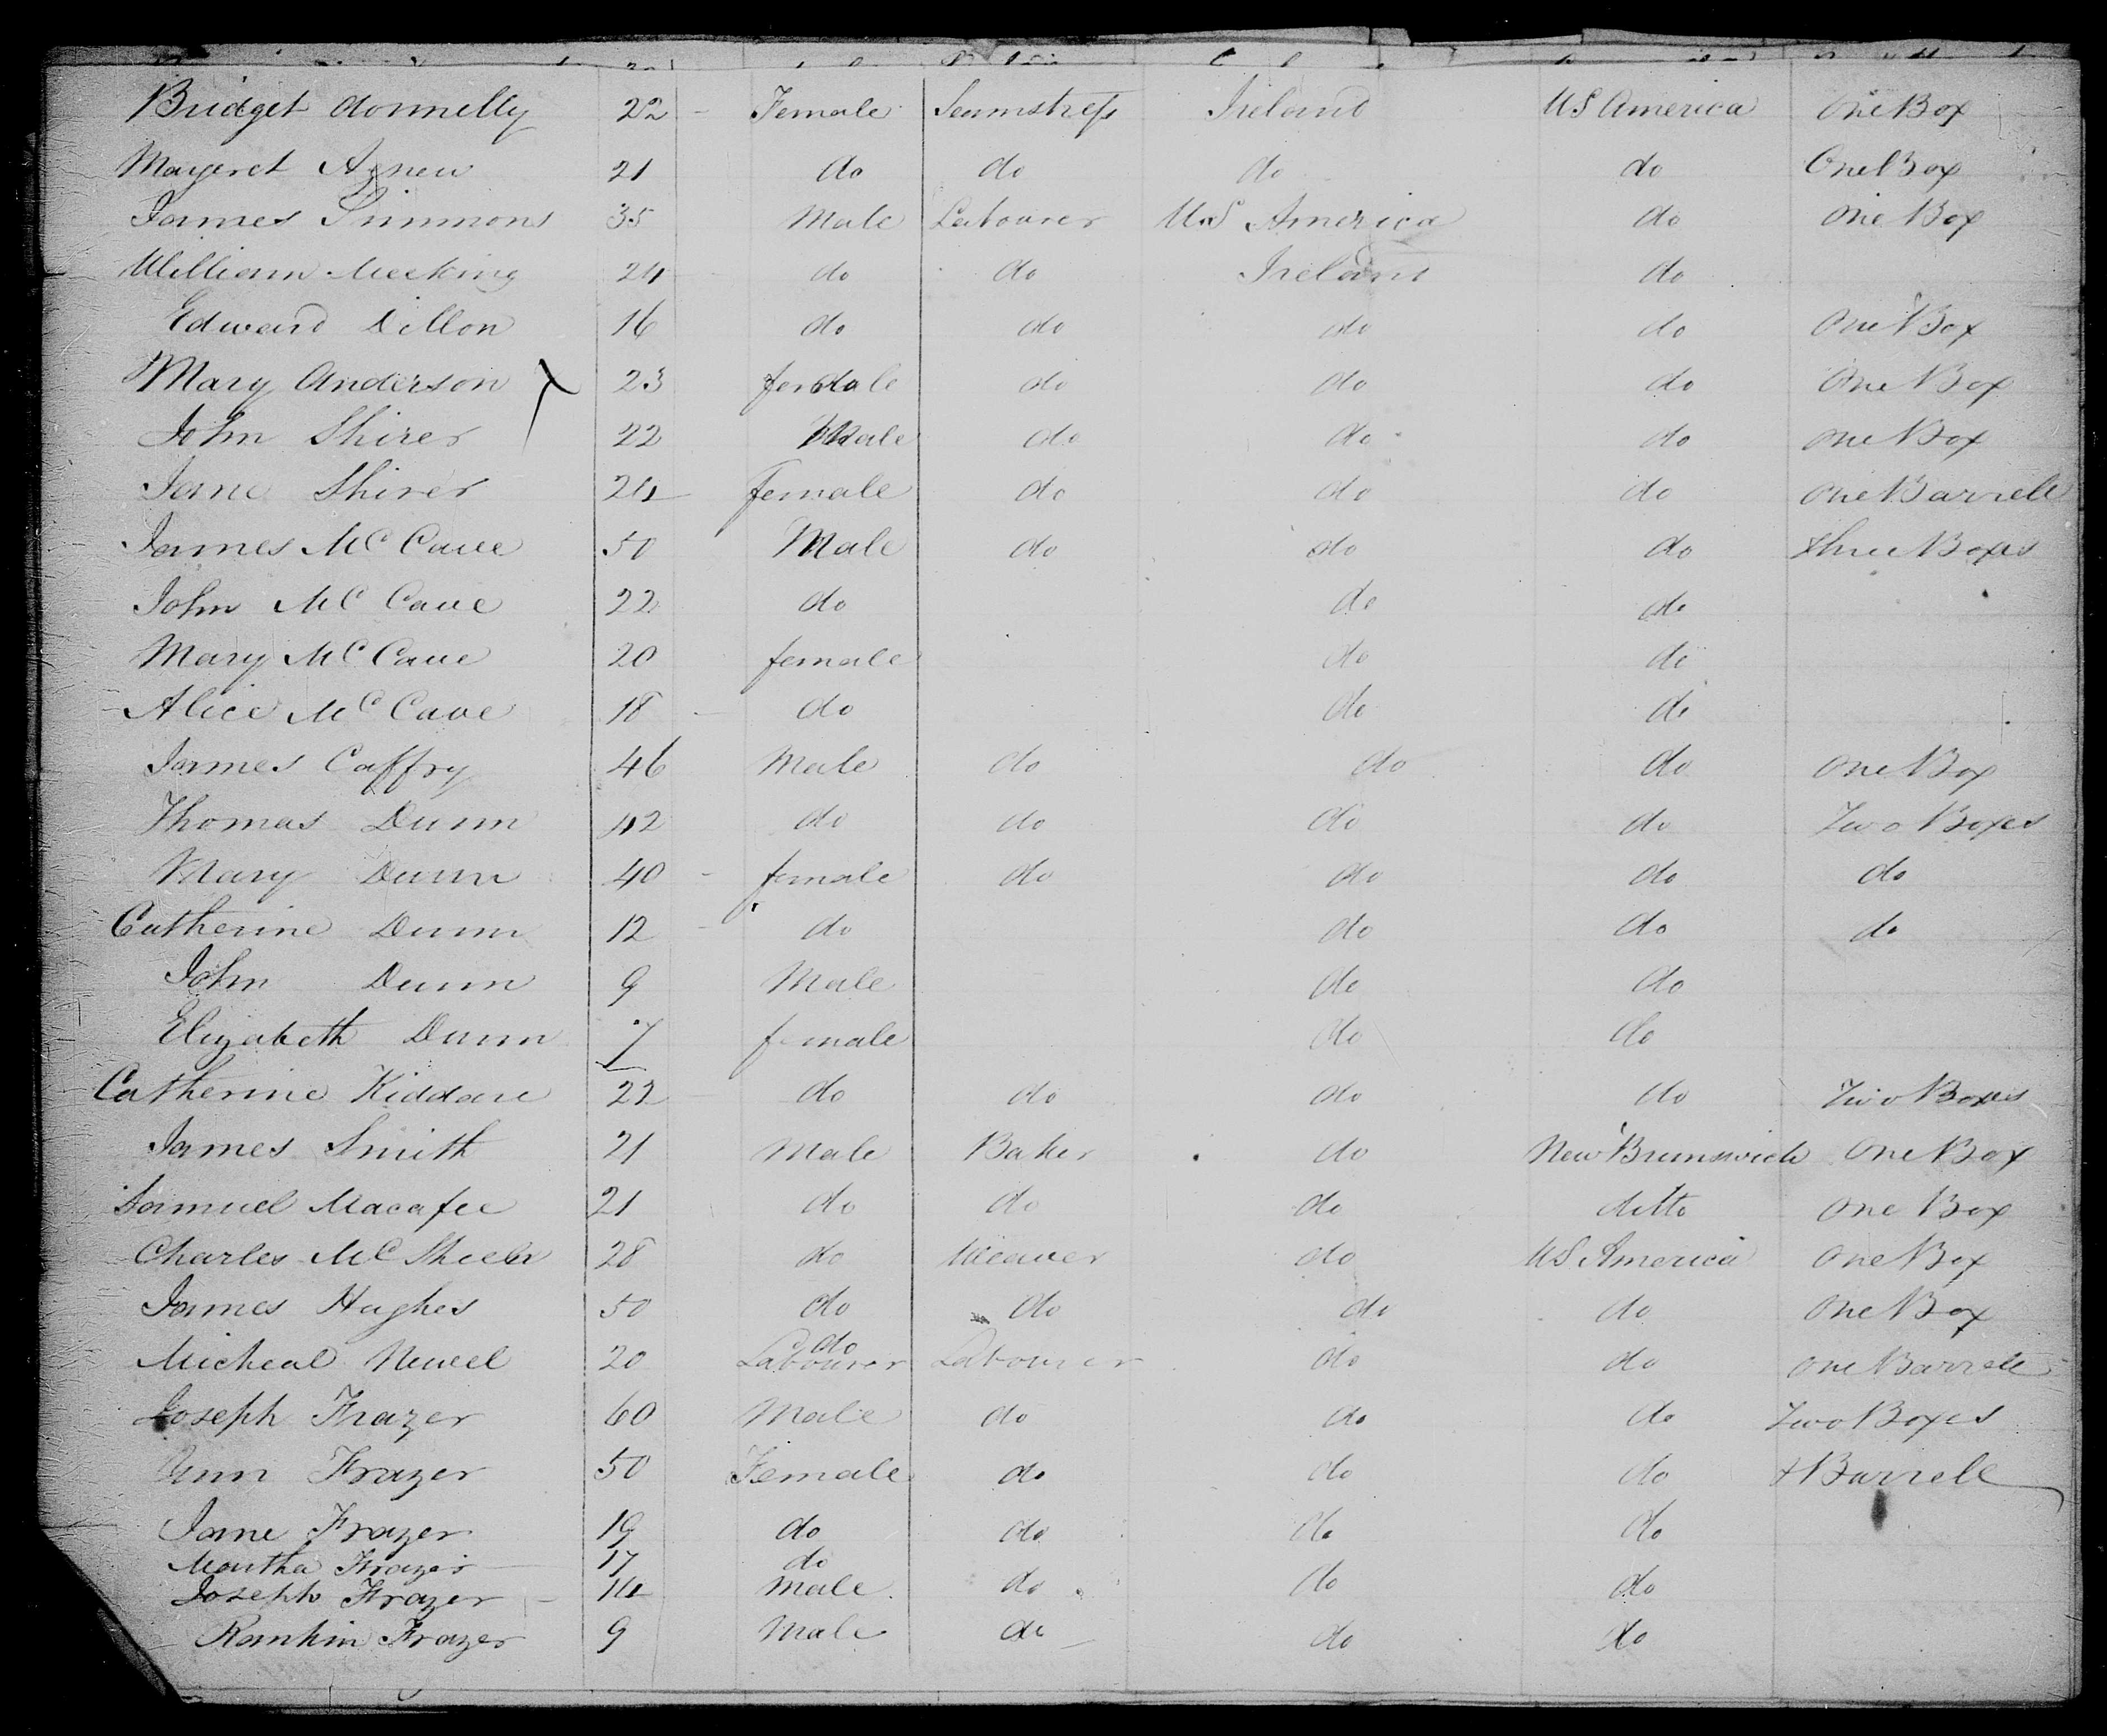 Bridget donnelly 22 Female Seamstress Ireland US America One Box
Margeret Agnew 21 do do do do One Box
James Simmons 35 Male Labourer US America do One Box
William Meeking 24 do do Ireland do
Edward Dillon 16 do do do do One Box
Mary Anderson 23 female do do do One Box
John Shirer 22 Male do do do One Box
Jane Shirer 24 female do do do One Barrell
James McCave 50 Male do do do three Boxes
John McCave 22 do do do
Mary McCave 20 female do do
Alice McCave 18 do do do
James Caffry 46 Male do do do One Box
Thomas Dunn 42 do do do do Two Boxes
Mary Dunn 40 female do do do do
Catherine Dunn 12 do do do do
John Dunn 9 Male do do
Elizabeth Dunn 7 female do do
Catherine Kiddare 22 do do do do Two Boxes
James Smith 21 Male Baker do New Brunswick One Box
Samuel Macafee 21 do do do ditto One Box
Charles McSheler 28 do Weaver do US America One Box
James Hughes 50 do do do do One Box
Micheal Newel 20 Labourer do Labourer do do One Barrell
Joseph Frazer 60 Male do do do Two Boxes
Ann Frazer 50 Female do do do + Barrell
Jane Frazer 19 do do do do
Martha Frazer 17 do
Joseph Frazer 14 Male do do do
Rankin Frazer 9 Male do do do